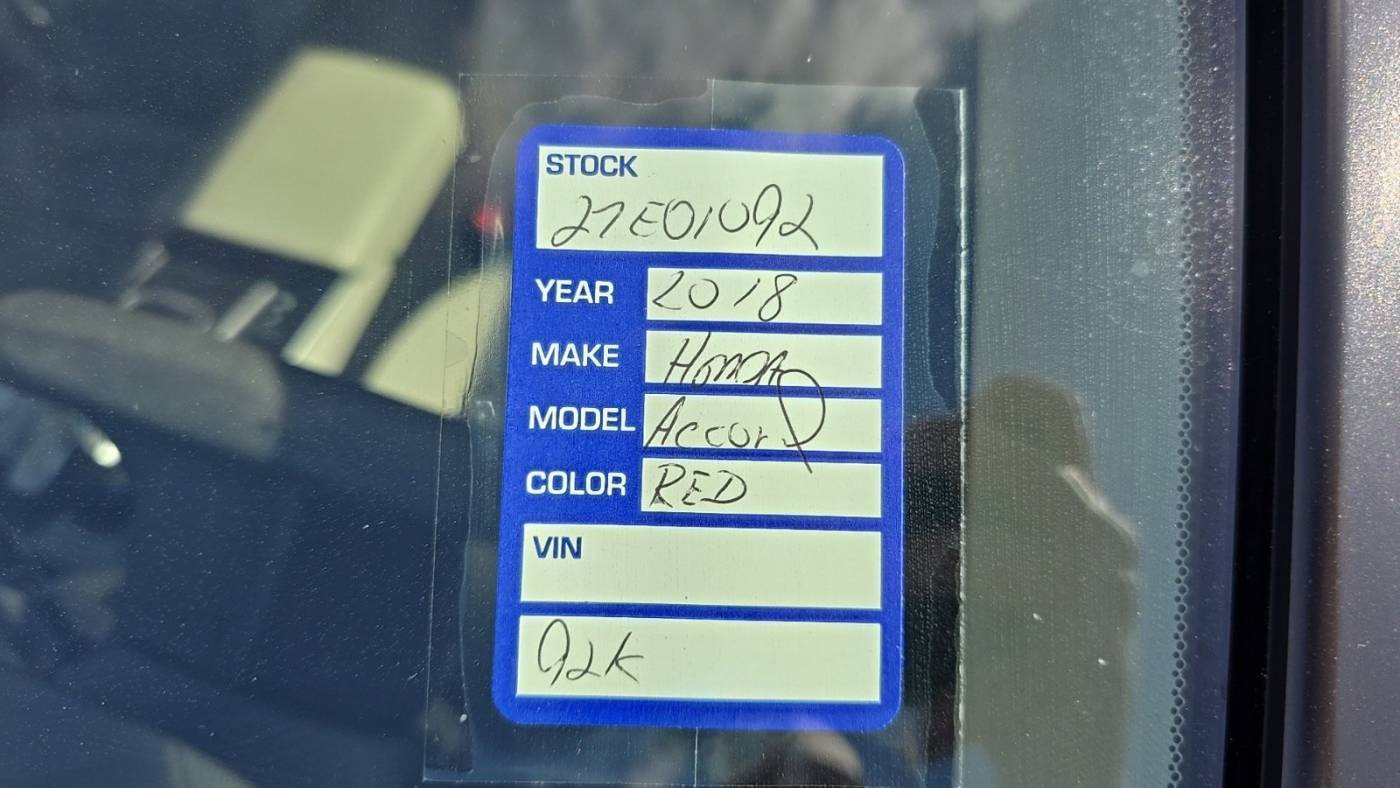 STOCK
27E01092
YEAR 2018
MAKE Honda
MODEL Accord
COLOR RED
VIN
92K